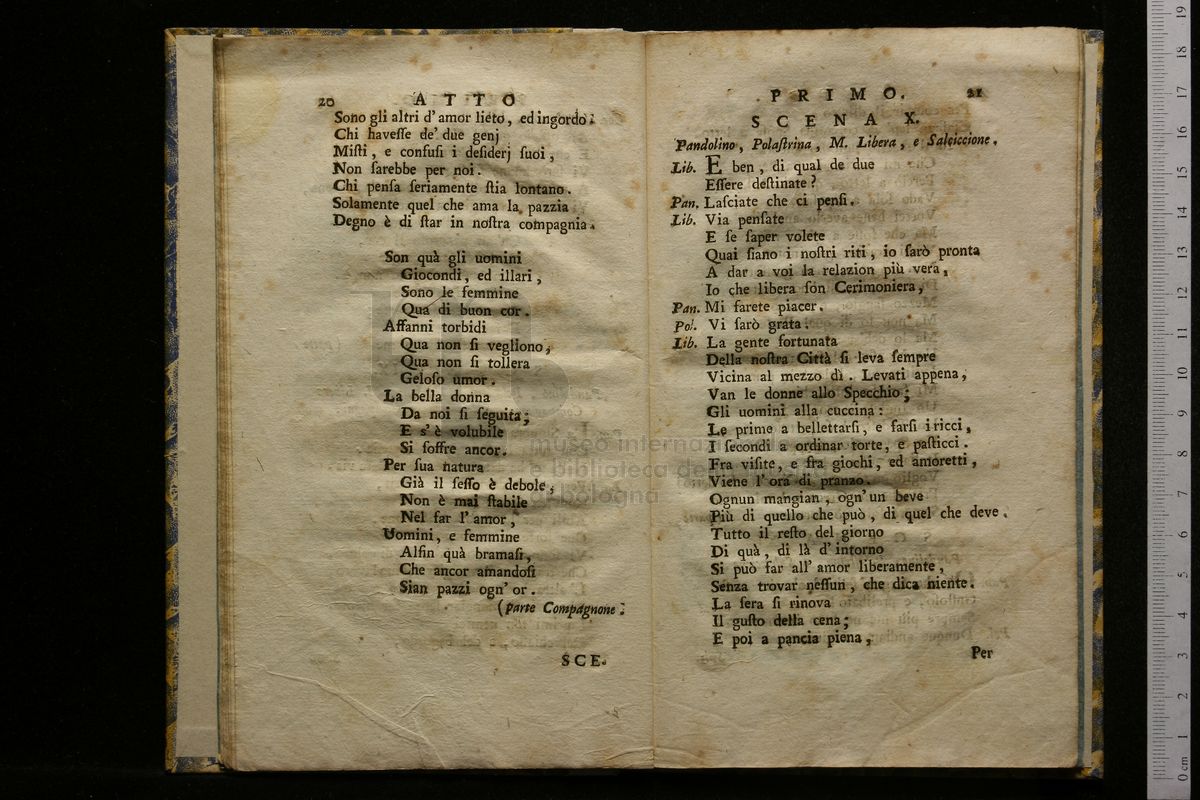 20 ATTO
Sono gli altri d'amor lieto, ed ingordo.
Chi haveſſe de' due genj
Miſti, e confuſi i deſiderj ſuoi,
Non ſarebbe per noi.
Chi penſa ſeriamente ſtia lontano.
Solamente quel che ama la pazzia
Degno è di ſtar in noſtra compagnia.
Son quà gli uomini
Giocondi, ed illari,
Sono le femmine
Qua di buon cor.
Affanni torbidi
Qua non ſi vegliono,
Qua non ſi tollera
Geloſo umor.
La bella donna
Da noi ſi ſeguita;
E s'è volubile
Si ſoffre ancor.
Per ſua natura
Già il ſeſſo è debole,
Non è mai ſtabile
Nel far l'amor,
Uomini, e femmine
Alfin quà bramaſi,
Che ancor amandoſi
Sian pazzi ogn'or.
(parte Compagnone.
SCE-
PRIMO. 21
SCENA X.
Pandolino, Polaſtrina, M. Libera, e Salciccione.
Lib. E ben, di qual de due
Eſſere deſtinate?
Pan. Laſciate che ci penſi.
Lib. Via penſate
E ſe ſaper volete
Quai ſiano i noſtri riti, io ſarò pronta
A dar a voi la relazion più vera,
Io che libera ſon Cerimoniera,
Pan. Mi farete piacer.
Pol. Vi ſarò grata.
Lib. La gente fortunata
Della noſtra Città ſi leva ſempre
Vicina al mezzo dì. Levati appena,
Van le donne allo Specchio;
Gli uomini alla cuccina:
Le prime a bellettarſi, e farſi i ricci,
I ſecondi a ordinar torte, e paſticci.
Fra viſite, e fra giochi, ed amoretti,
Viene l'ora di pranzo.
Ognun mangian, ogn'un beve
Più di quello che può, di quel che deve.
Tutto il reſto del giorno
Di quà, di là d'intorno
Si può far all'amor liberamente,
Senza trovar neſſun, che dica niente.
La ſera ſi rinova
Il guſto della cena;
E poi a pancia piena,
Per
museo internazionale
e biblioteca della
di bologna
0 cm 1 2 3 4 5 6 7 8 9 10 11 12 13 14 15 16 17 18 19